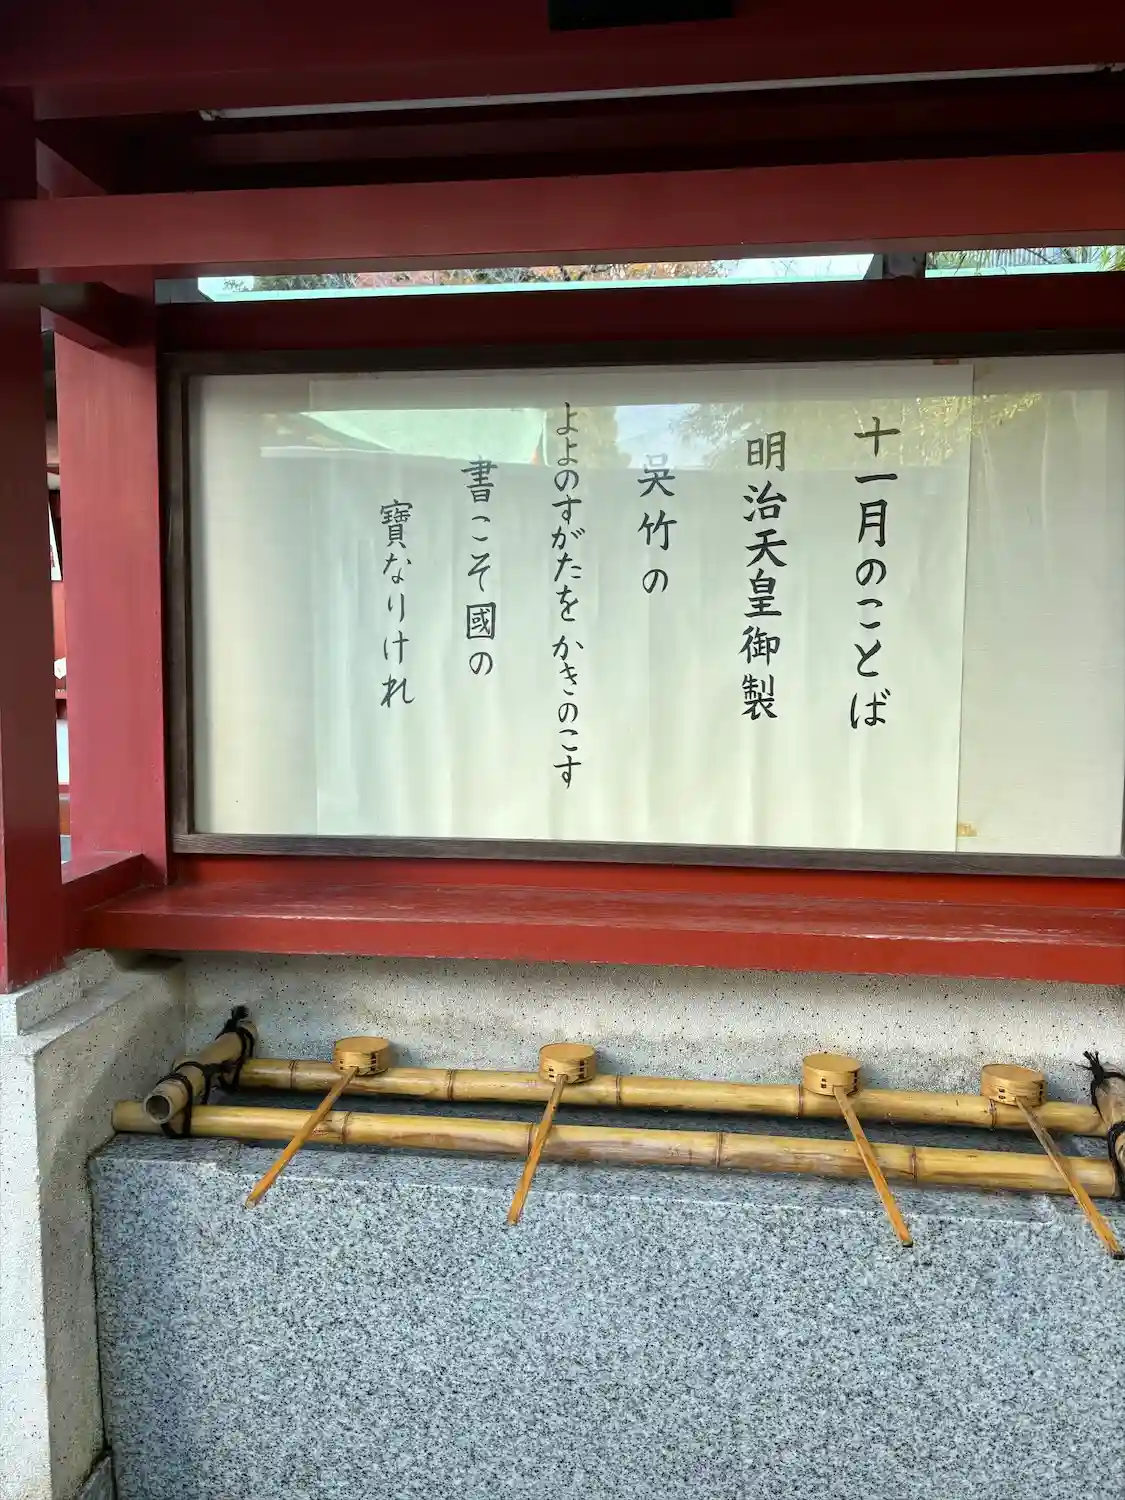 十一月のことば
明治天皇御製
呉竹の
よよのすがたを かきのこす
書こそ國の
寶なりけれ